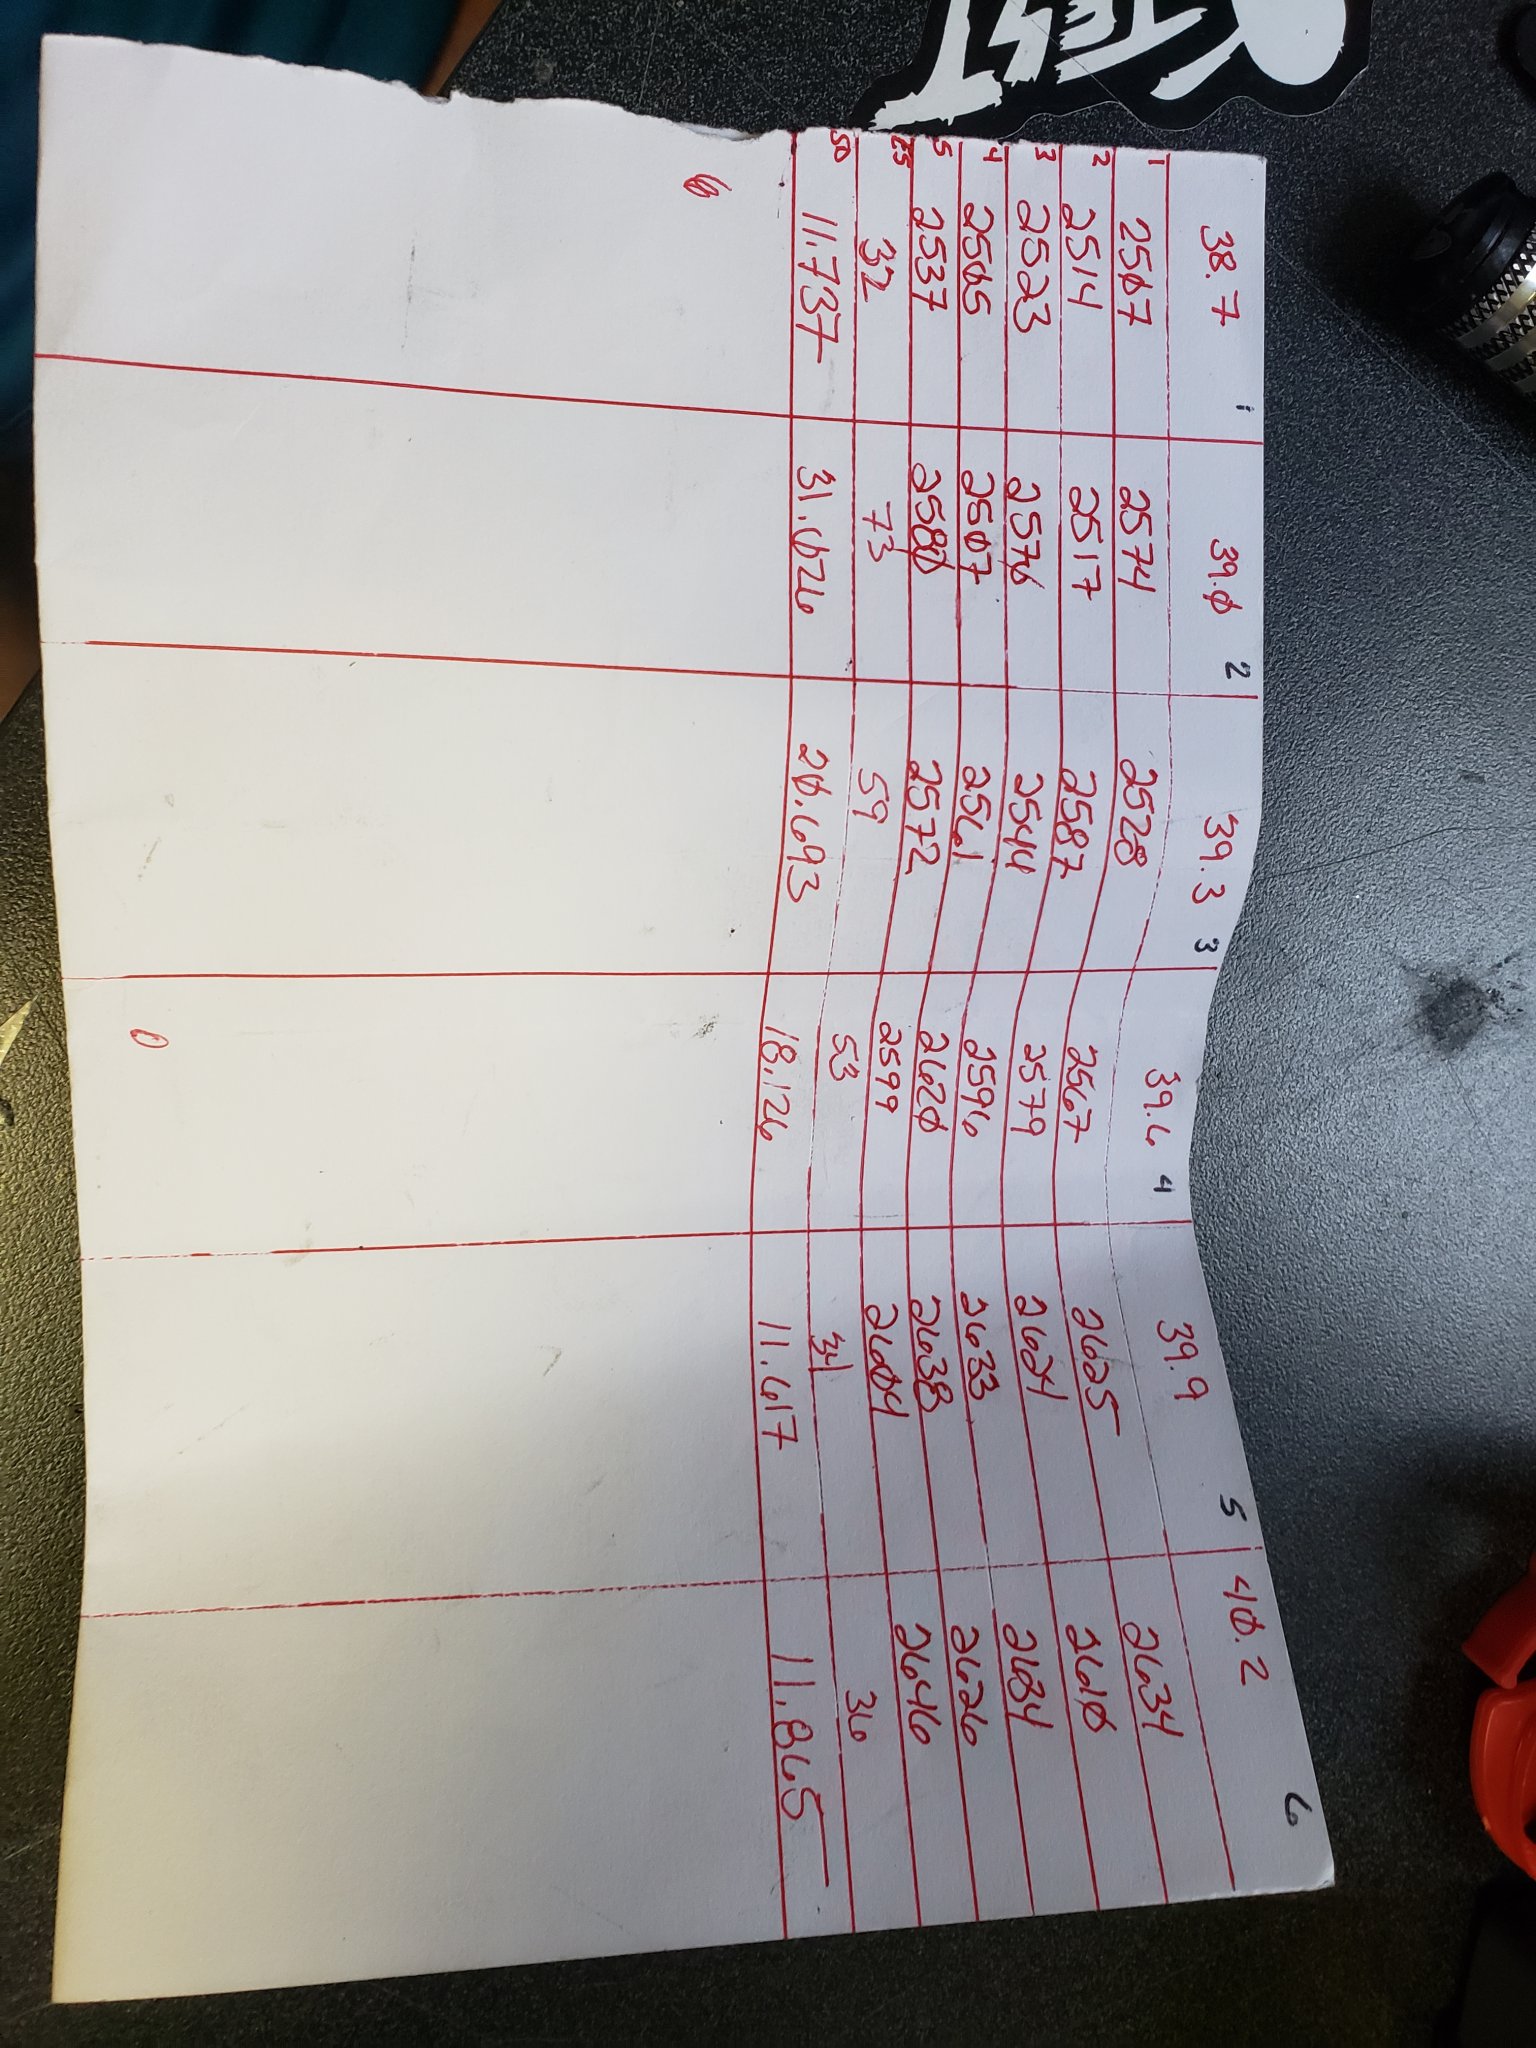 1 2 3 4 5 6
38.7 39.0 39.3 39.6 39.9 40.2
1 2507 2574 2528 2567 2625 2634
2 2514 2517 2587 2579 2624 2610
3 2523 2576 2544 2596 2633 2634
4 2505 2507 2561 2620 2638 2626
5 2537 2580 2572 2599 2604 2646
ES 32 73 59 53 34 36
SD 11.737 31.026 20.693 18.126 11.617 11.865
0